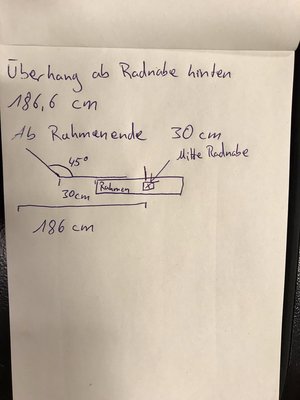 Überhang ab Radnabe hinten
186,6 cm
Ab Rahmenende 30 cm
Mitte Radnabe
45°
Rahmen
30cm
186 cm